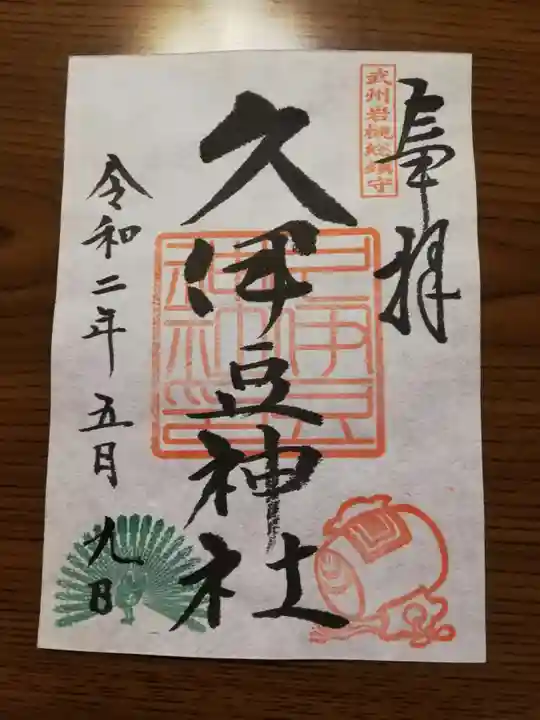 奉拝
武州岩槻総鎮守
久伊豆神社
令和二年五月九日